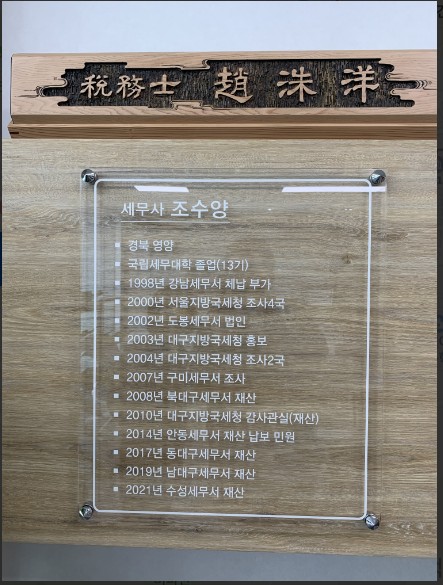 稅務士 趙洙洋
세무사 조수양
경북 영양
국립세무대학 졸업(13기)
1998년 강남세무서 체납 부가
2000년 서울지방국세청 조사4국
2002년 도봉세무서 법인
2003년 대구지방국세청 홍보
2004년 대구지방국세청 조사2국
2007년 구미세무서 조사
2008년 북대구세무서 재산
2010년 대구지방국세청 감사관실(재산)
2014년 안동세무서 재산 납보 민원
2017년 동대구세무서 재산
2019년 남대구세무서 재산
2021년 수성세무서 재산